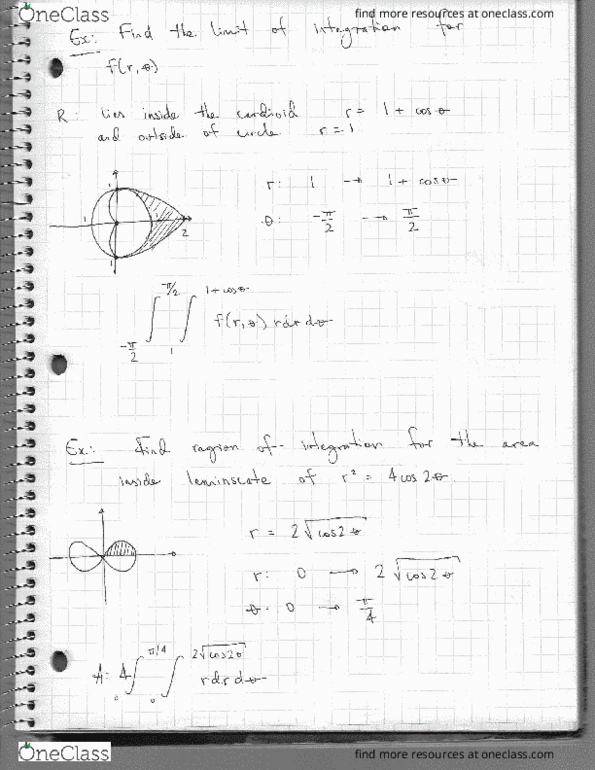 OneClass
find more resources at oneclass.com
Ex: Find the limit of integration for
f(r, θ)
R: lies inside the cardioid r = 1 + cos θ
and outside of circle r = 1
r: 1 → 1 + cos θ
θ: -π/2 → π/2
1
1
1
2
1
∫_{-π/2}^{π/2} ∫_1^{1+cos θ} f(r, θ) r dr dθ
Ex: Find ragion of integration for the area
inside leminscate of r² = 4 cos 2θ.
r = 2√cos2θ
r: 0 → 2√cos2θ
θ: 0 → π/4
A: 4 ∫_0^{π/4} ∫_0^{2√cos2θ} r dr dθ
OneClass
find more resources at oneclass.com